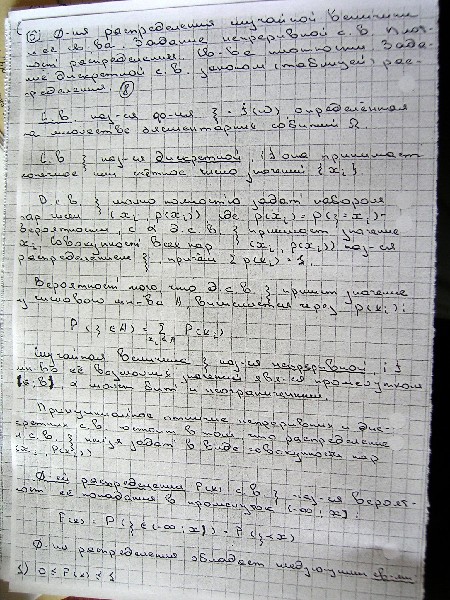 Ф-ия распределения случайной величины
и её св-ва. Задание непрерывной с.в. плот-
ностью распределения. Св-ва плотности. Зада-
ние дискретной с.в. законом (таблицей) рас-
пределения
С.в. наз-ся ф-ия ξ = ξ(ω) определенная
на множестве элементарных событий Ω.
С.в ξ наз-ся дискретной, если она принимает
конечное или счётное число значений {xi}
Д с.в. ξ можно полностью задать набором
пар чисел (xi, p(xi)) где p(xi) = P(ξ=xi) -
вероятность, с д.с.в. ξ принимает значение
xi. Совокупность всех пар (xi, p(xi)) наз-ся
распределением ξ, причём Σ p(xi) = 1.
Вероятность того что д.с.в. ξ примет значение
из числового мн-ва A, вычисляется через p(xi):
P(ξ∈A) = Σ P(xi)
xi∈A
Случайная величина ξ наз-ся непрерывной, если
мн-во её возможных значений явл-ся промежутком
[a;b], а может быть и неограниченным.
Принципиальное отличие непрерывных и дис-
кретных с.в. состоит в том, что распределение
н.с.в. ξ нельзя задать в виде совокупности пар
(xi, p(xi))
Ф-ей распределения F(x) с.в ξ наз-ся вероят-
ность её попадания в промежуток (-∞; x]:
F(x) = P(ξ∈(-∞;x]) = P(ξ≤x)
Ф-ия распределения обладает следующими св-ми
1) 0 ≤ F(x) ≤ 1